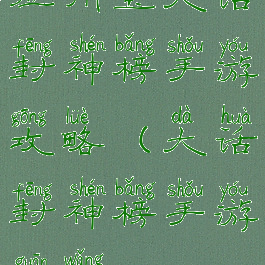 fēng shén bǎng shǒu yóu
封神榜手游
gōng lüè dà huà
攻略（大话
fēng shén bǎng shǒu yóu
封神榜手游